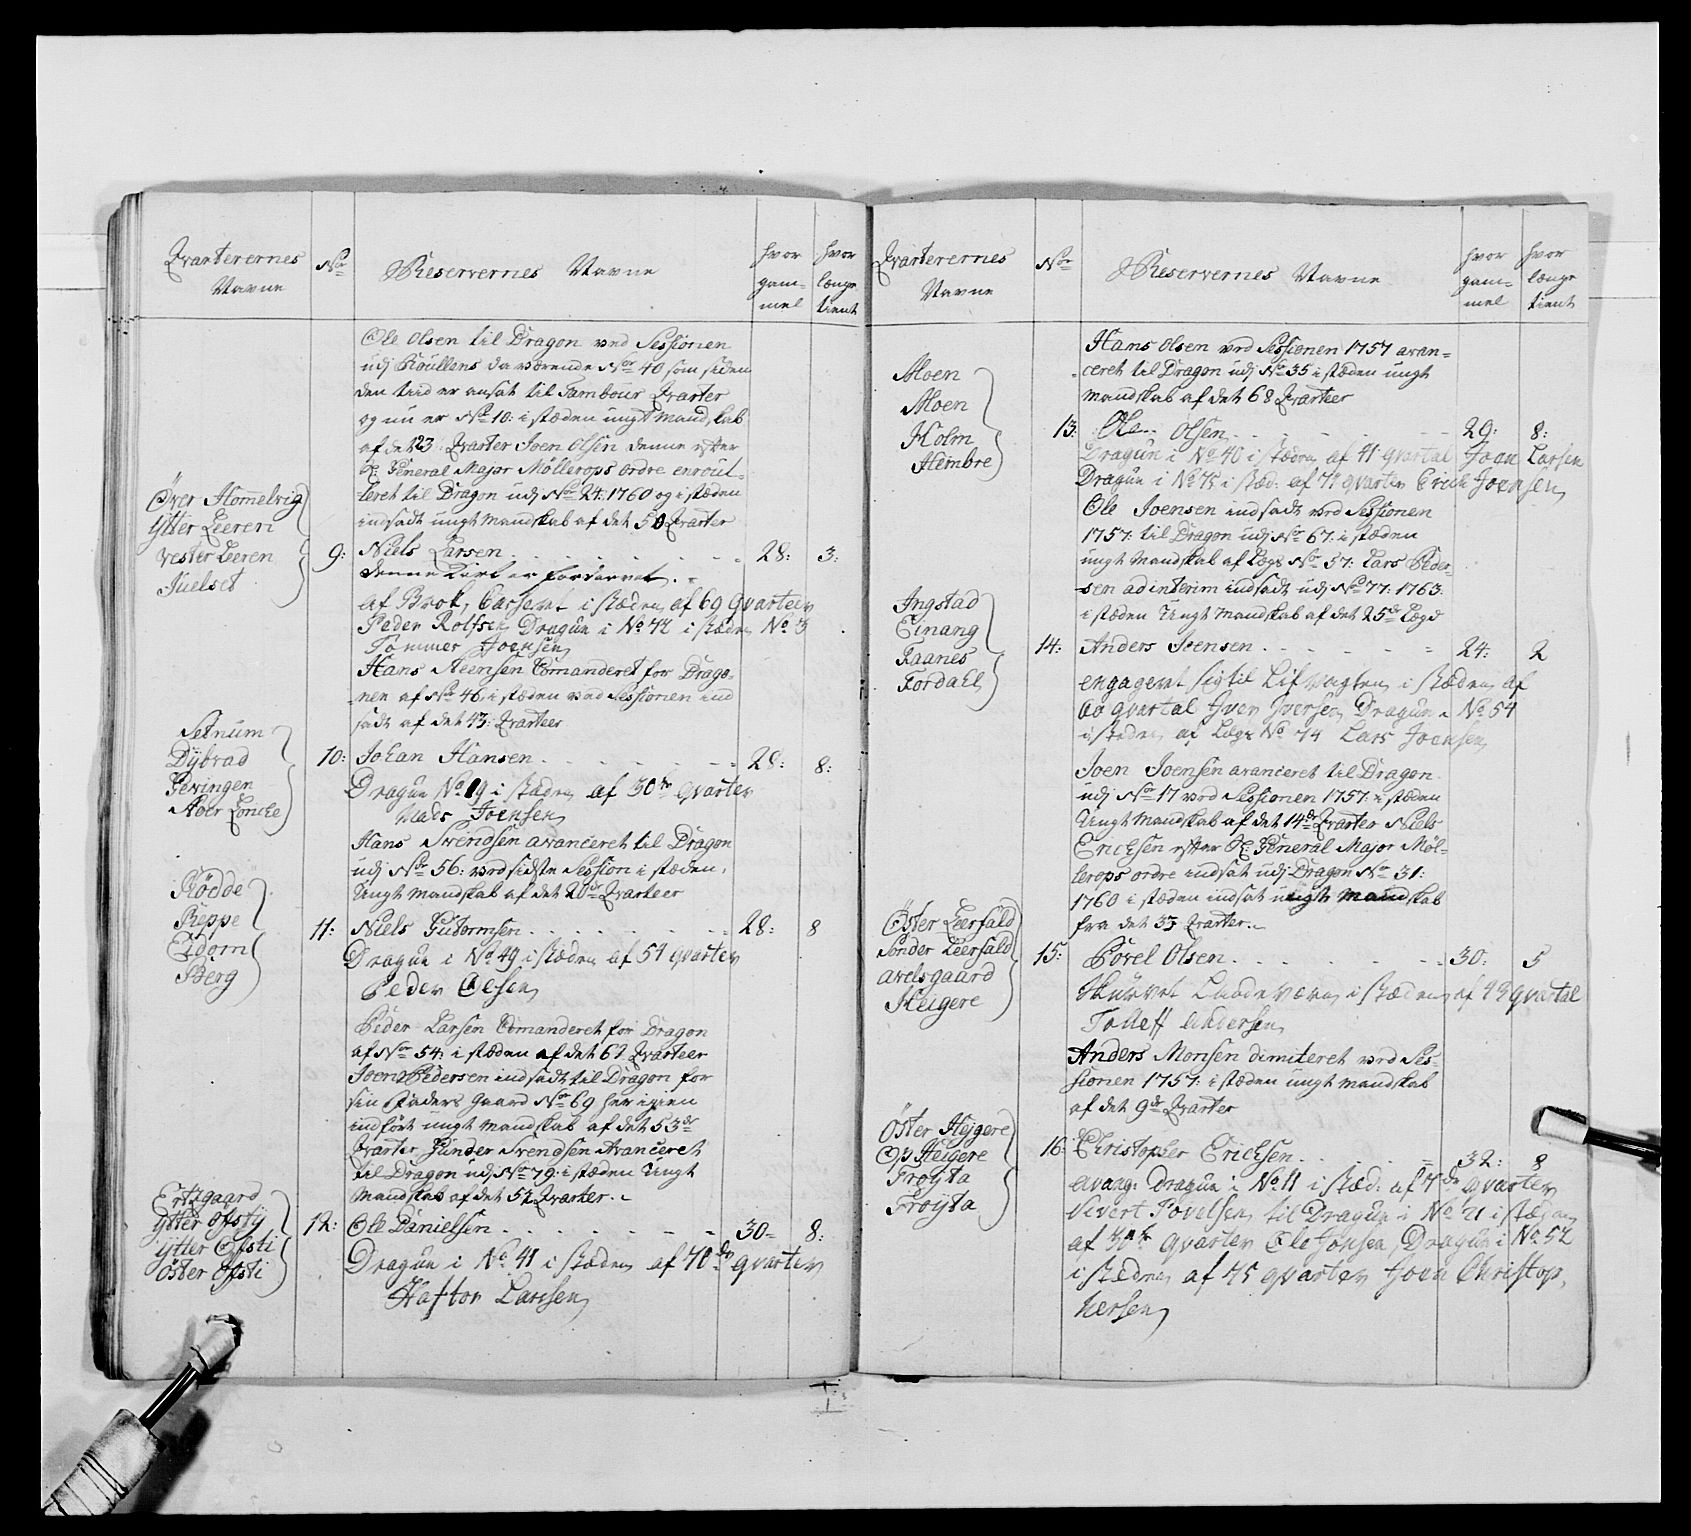 Qvarterernes
Navne
No
Reservernes Navne
hvor
gam-
mel
hvor
længe
tient
Ole Olsen til Dragon ved Sessionen
udj Roullens daværende No 40 som siden
den tiid er ansat til Tambour Qvarter
og nu er No 10: i stæden ungt Mandskab
af det 23 Qvarter Joen Olsen denne efter
H: General Major Möllerops ordre enroul-
leret til Dragon udj No 24: 1760 og i stæden
indsadt ungt Mandskab af det 50 Qvarter
Över Homelvig
Ytter Leeren
Vester Leeren
Juelset
9: Niels Larsen 28: 3:
denne Karl er fordærvet
af Brok, Casseret i stæden af 69 Qvarteer
Peder Rolfsen Dragun i No 72 i stæden No 3
Tommer Joensen
Hans Steensen Comanderet for Drago-
nen af No 46: i stæden ved Sessionen ind
sadt af det 43: Qvarteer
Setnum
Dybvad
Gevingen
Aver Loncke
10: Johan Hansen 28: 8:
Dragun No 19 i stæden af 30te Qvarter
Mads Joensen
Hans Svendsen avanceret til Dragon
udj No 56: ved sidste Session i stæden
Ungt Mandskab af det 20de Qvarteer
Rödde
Reppe
Eidom
Berg
11: Niels Gutormsen 28: 8
Dragun i No 49 i stæden af 54 qvarter
Peder Olsen
Peder Larsen Comanderet for Dragon
af No 54: i stæden af det 62 Qvarteer
Joen Pedersen indsadt til Dragon for
sin Faders Gaard No 69 her igien
indfört ungt Mandskab af det 53de
Qvarter Gunder Svendsen Avanceret
til Dragon udj No 79: i stæden Ungt
Mandskab af det 52 Qvarter
Ertzgaard
Ytter Ofsti
Ytter Ofsti
Öster Ofsti
12: Ole Danielsen 30 8:
Dragun i No 41 i stæden af 70de qvarter
Haftor Larssen
Qvarterernes
Navne
No
Reservernes Navne
hvor
gam-
mel
hvor
længe
tient
Hans Olsen ved Sessionen 1757 avan-
ceret til Dragon udj No 35 i stæden ungt
Mandskab af det 68 Qvarteer
Moen
Moen
Holm
Hembre
13: Ole Olsen 29: 8:
Dragun i No 40 i stæden af 41 qvartal Joen Larsen
Dragun i No 75 i stæd: af 72 qvarter Erich Joensen
Ole Joensen indsadt ved Sessionen
1757: til Dragon udj No 67: i stæden
ungt Mandskab af Legd No 57: Lars Peder-
sen ad interim indsadt udj No 77: 1763:
i stæden Ungt Mandskab af det 25de Legd
Ingstad
Einang
Raanes
Fordahl
14: Anders Ivensen 24: 2
engageret sig til Lifvagten i stæden af
60 qvartal Iver Iversen Dragun i No 54
i stæden af Legd No 74 Lars Joensen
Joen Joensen avanceret til Dragon
udj No 17 ved Sessionen 1757: i stæden
Ungt Mandskab af det 14de Qvarter Niels
Ericksen efter H: General Major Möl-
lerops ordre indsat udj Dragon No 31:
1760 i stæden indsat ungt Mandskab
fra det 33 Qvarter
Öster Leerfald
Sönder Leerfald
Axelsgaard
Heigere
15: Povel Olsen 30: 5
Landeværn i stæden af 43 qvartal
Tolleff Andersen
Anders Monsen dimiteret ved Ses-
sionen 1757: i stæden ungt Mandskab
af det 9de Qvarter
Öster Hejgere
Op Heigere
Fröyta
Fröyta
16: Christopher Ericksen 32: 8
avang: Dragun i No 11 i stæd: af 7de qvarter
Sivert Povelsen til Dragun i No 21 i stæden
af qvarter Ole Jonsen, Dragun i No 52
i stæden af 75 qvarter Joen Christop
hersen